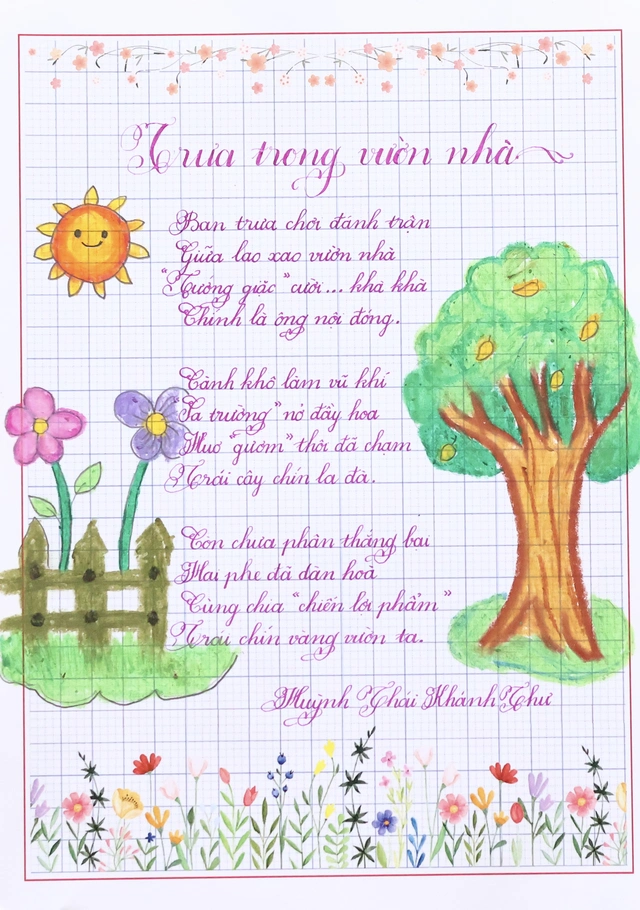 Trưa trong vườn nhà
Ban trưa chơi đánh trận
Giữa lao xao vườn nhà
"Tướng giặc" cười... khà khà
Chính là ông nội đóng.
Cành khô làm vũ khí
"Sa trường" nở đầy hoa
Huơ "gươm" thôi đã chạm
Trái cây chín la đà.
Còn chưa phân thắng bại
Hai phe đã dàn hoà
Cùng chia "chiến lợi phẩm"
Trái chín vàng vườn ta.
Huỳnh Thái Khánh Thư